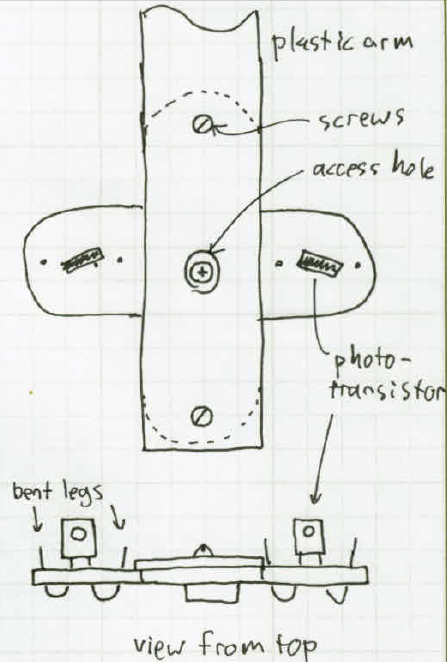 plastic arm
screws
access hole
photo-
transistor
bent legs
view from top